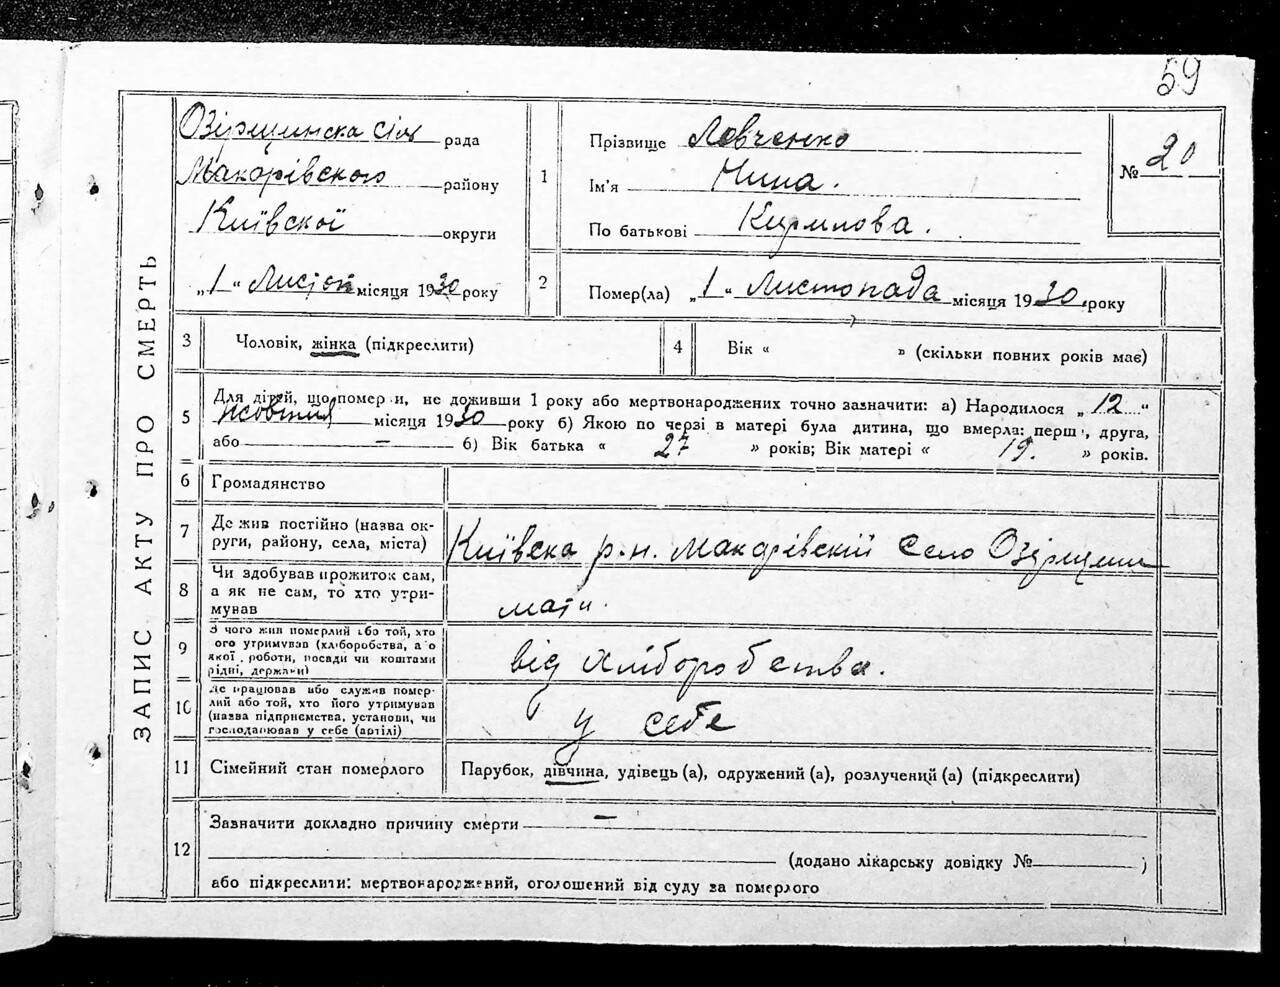 59
ЗАПИС АКТУ ПРО СМЕРТЬ
Озірщинска сіл рада
Макарівского району
Київскої округи
„1“ Листоп місяця 1930 року
1
Прізвище Левченко
Ім'я Нина.
По батькові Кирилова.
№ 20
2
Помер(ла) „1“ Листопада місяця 1930 року
3
Чоловік, жінка (підкреслити)
4
Вік „ ” (скільки повних років має)
5
Для дітей, що померли, не доживши 1 року або мертвонароджених точно зазначити: а) Народилося „12“
жовтня місяця 1930 року б) Якою по черзі в матері була дитина, що вмерла: перша, друга,
або — б) Вік батька „ 27 ” років; Вік матері „ 19. ” років.
6
Громадянство
7
Де жив постійно (назва ок-
руги, району, села, міста)
Київска р.н. Макарівский село Озірщини
8
Чи здобував прожиток сам,
а як не сам, то хто утри-
мував
мати.
9
З чого жив померлий або той, хто
його утримував (хліборобства, або
якої роботи, посади чи коштами
рідні, держави)
від хлібороб ства.
10
Де працював або служив помер-
лий або той, хто його утримував
(назва підприємства, установи, чи
господарював у себе (артілі)
у себе
11
Сімейний стан померлого
Парубок, дівчина, удівець (а), одружений (а), розлучений (а) (підкреслити)
12
Зазначити докладно причину смерти —
(додано лікарську довідку № )
або підкреслити: мертвонароджений, оголошений від суду за померлого